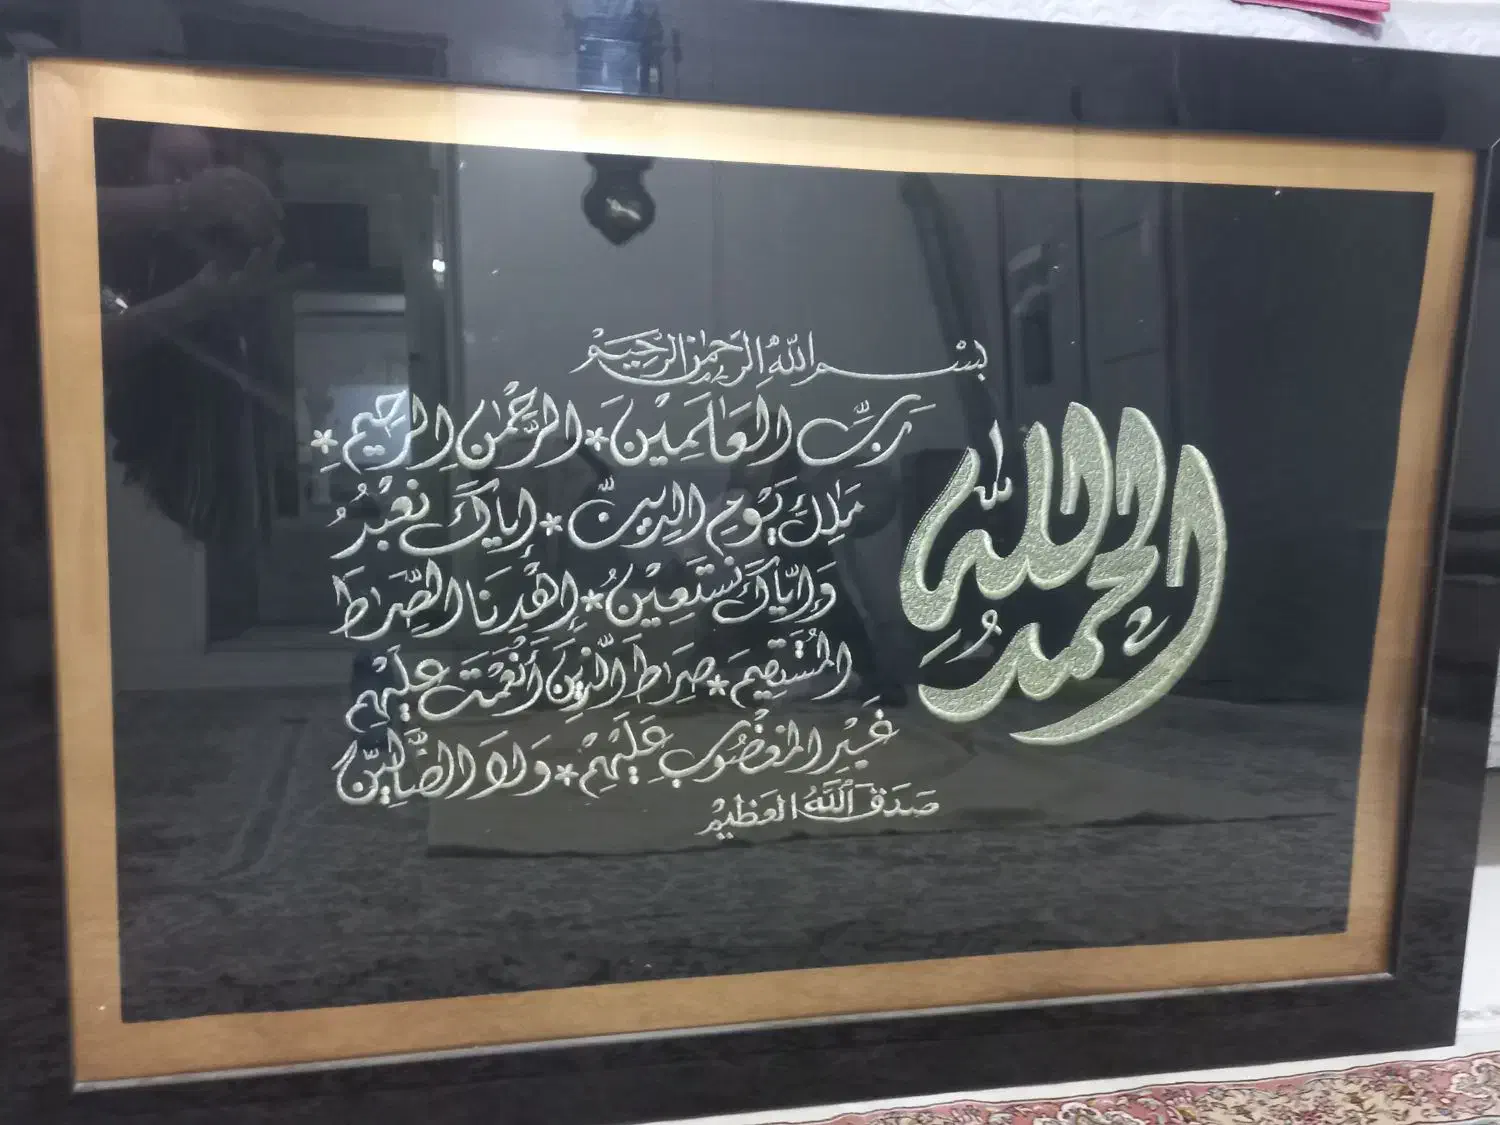 بِسْمِ اللهِ الرَّحْمٰنِ الرَّحِيْمِ
الحَمْدُ لِلّٰهِ
رَبِّ الْعَالَمِيْنَ * الرَّحْمٰنِ الرَّحِيْمِ *
مَالِكِ يَوْمِ الدِّيْنِ * إِيَّاكَ نَعْبُدُ
وَإِيَّاكَ نَسْتَعِيْنُ * إِهْدِنَا الصِّرَاطَ
الْمُسْتَقِيْمَ * صِرَاطَ الَّذِيْنَ أَنْعَمْتَ عَلَيْهِمْ
غَيْرِ الْمَغْضُوْبِ عَلَيْهِمْ * وَلَا الضَّالِّيْنَ
صَدَقَ اللهُ الْعَظِيْمُ